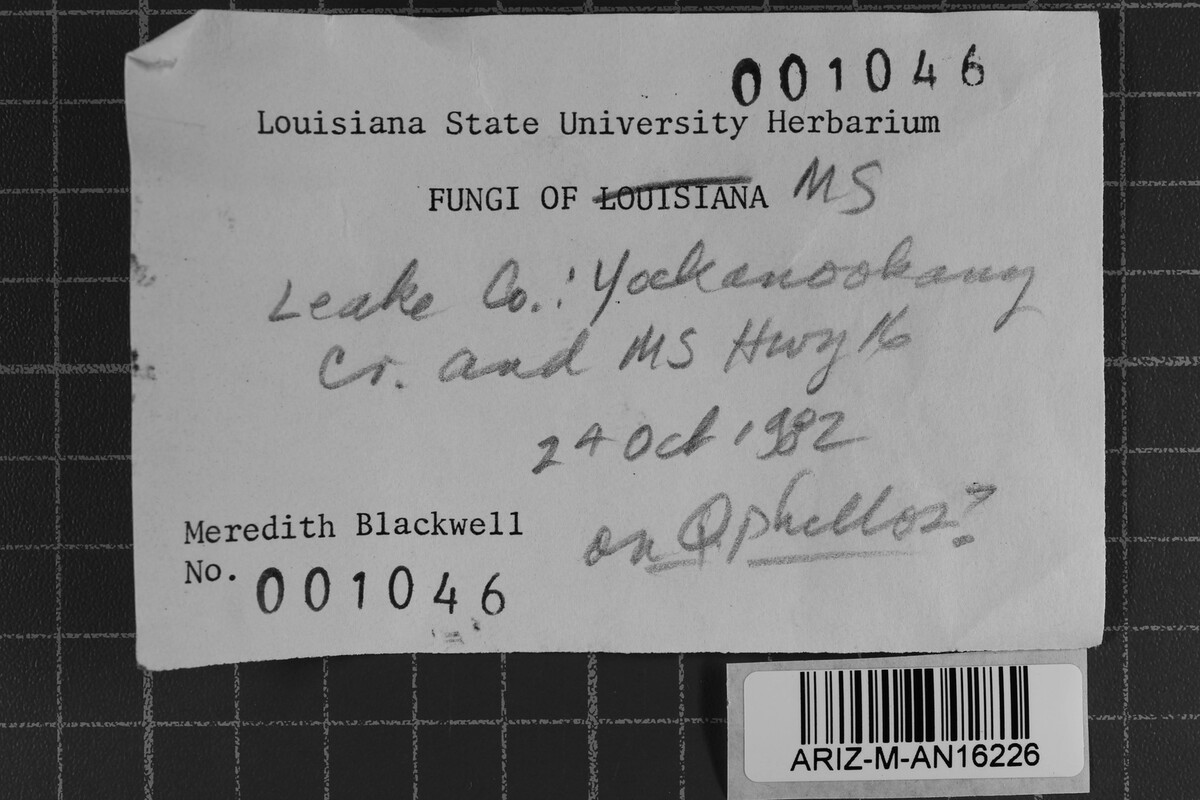 001046
Louisiana State University Herbarium
FUNGI OF LOUISIANA MS
Leake Co.: Yockanookany
Cr. and MS Hwy 16
24 Oct 1982
on Q phellos?
Meredith Blackwell
No. 001046
ARIZ-M-AN16226